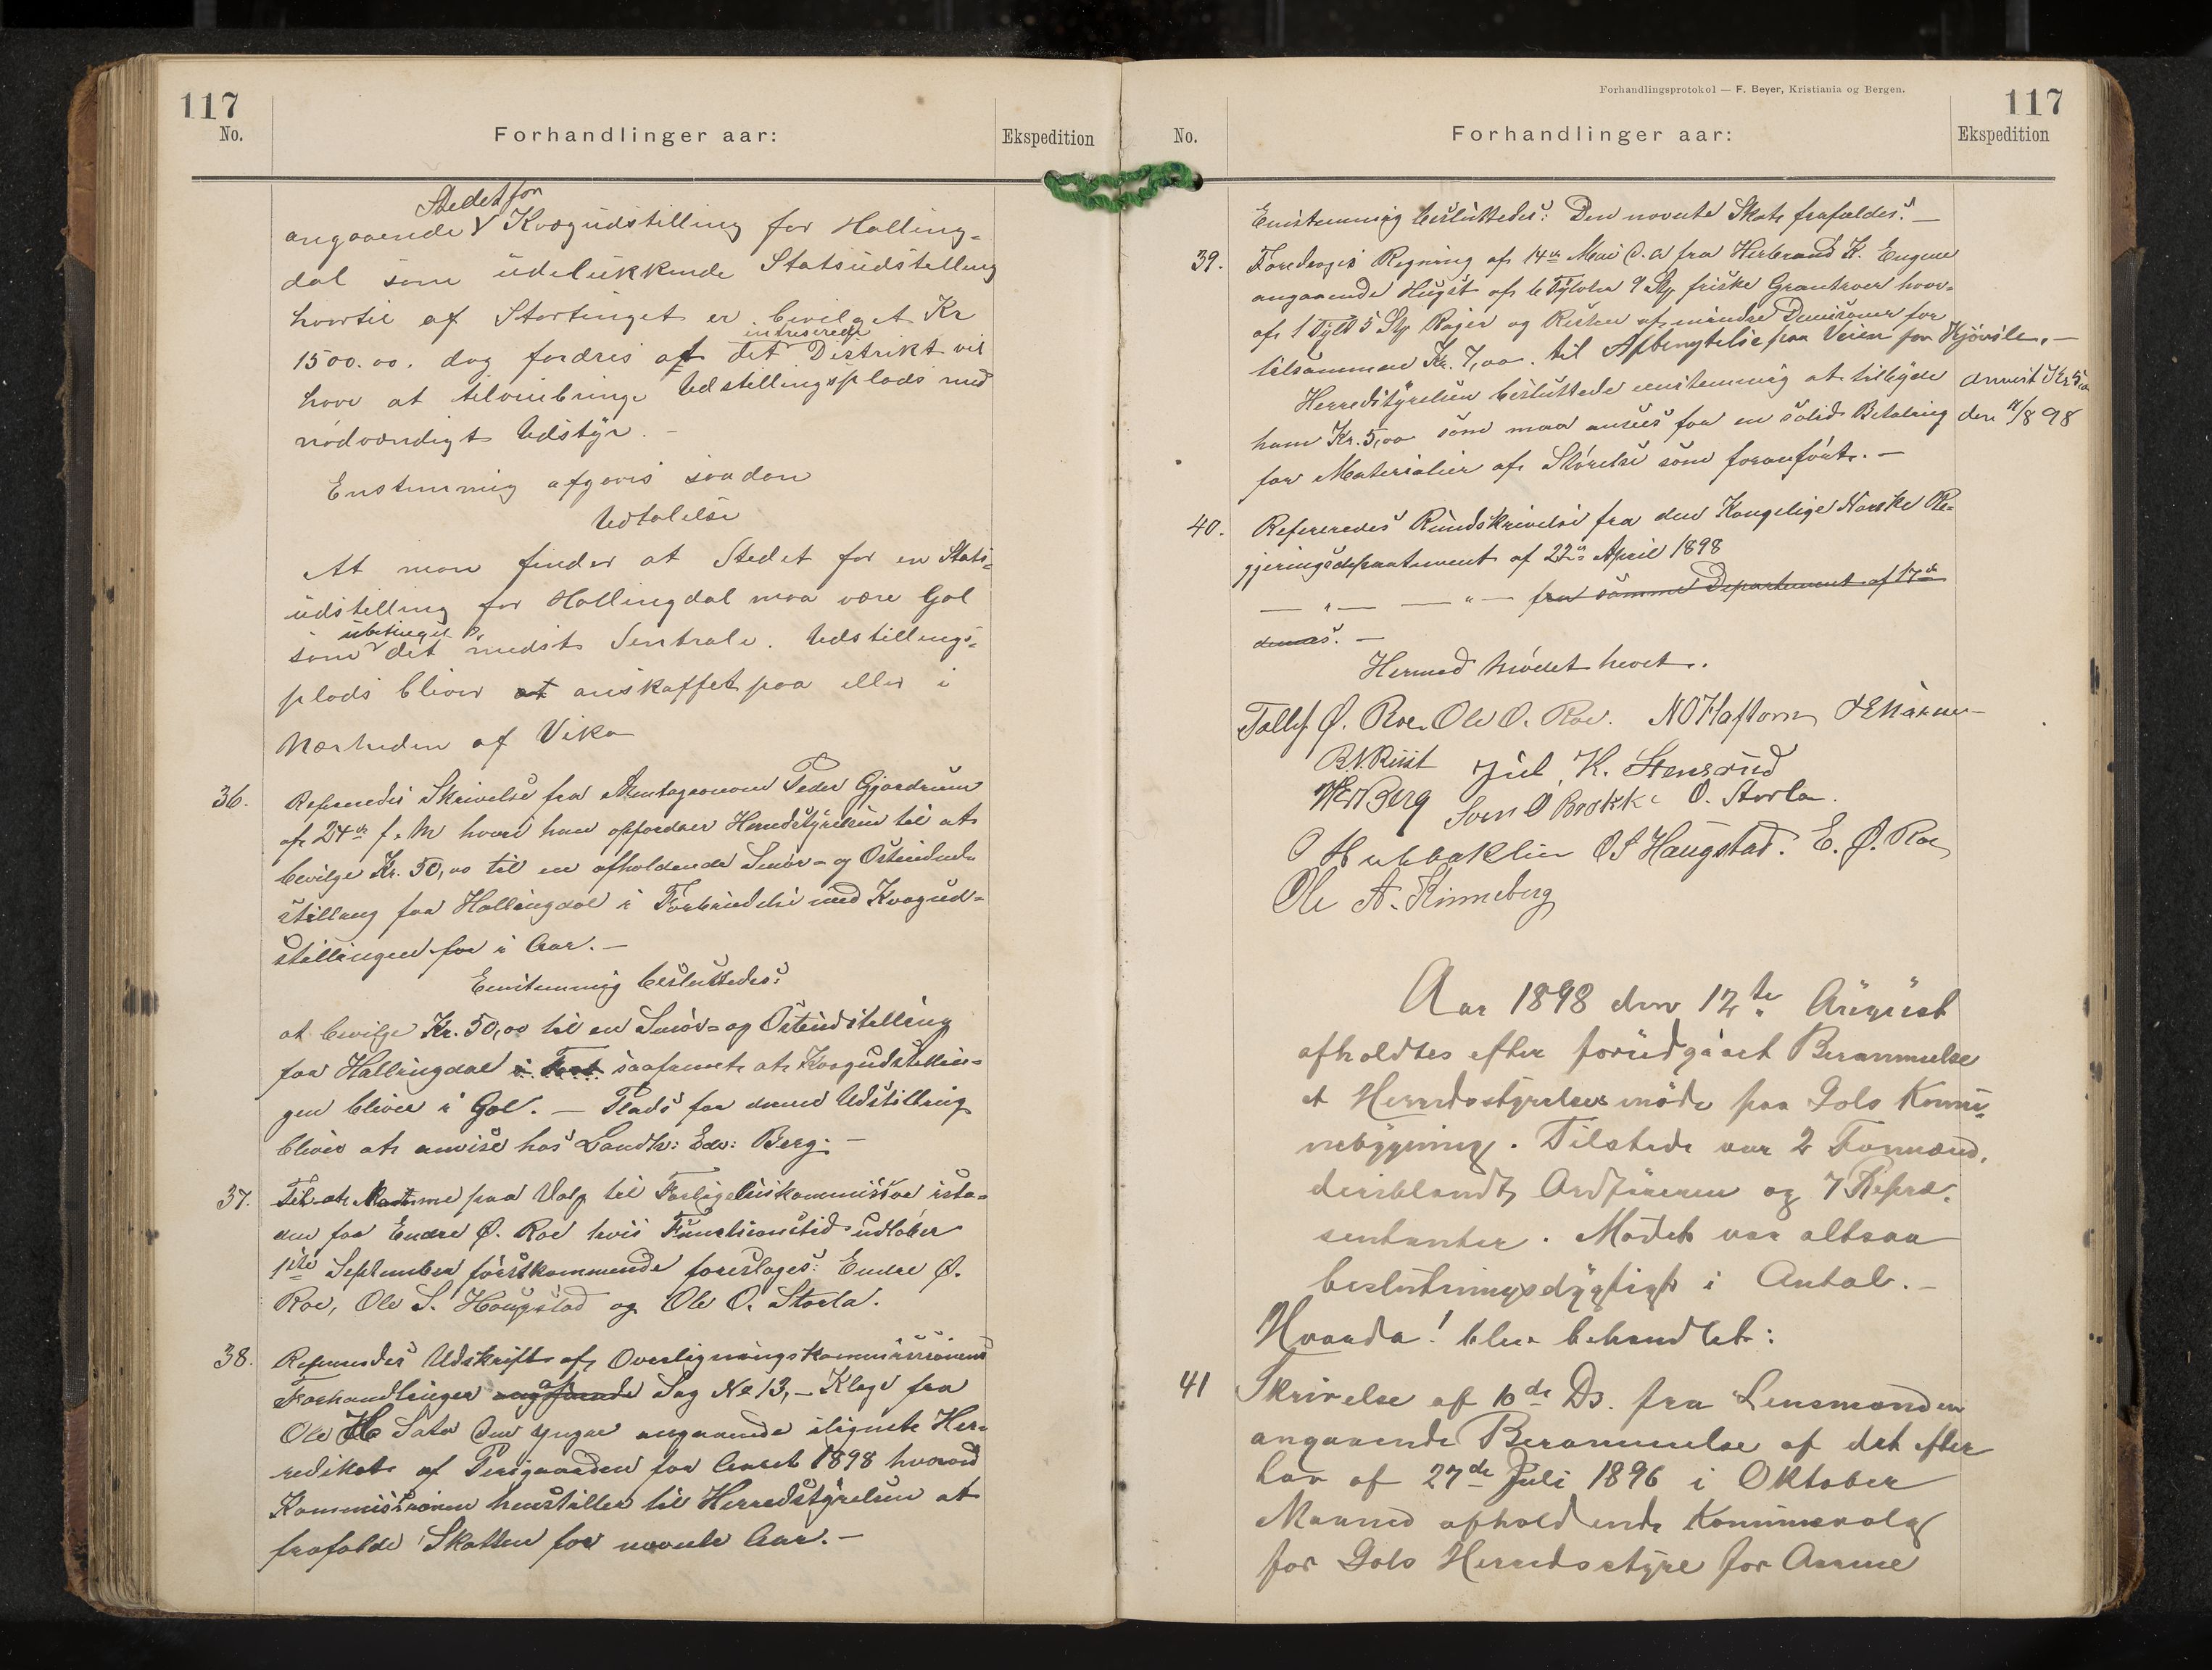 117
No.
Forhandlinger aar:
Ekspedition
Stedet for
angaaende V Kvægudstilling for Halling-
dal som udelukkende Statsudstilling
hvortil af Stortinget er bevilget Kr
intreserede
1500.00. dog fordres at det Distrikt vil
have at tilveiebringe Udstillingsplads med
nødvændigt Udstyr. -
Enstemmig afgaves saadan
Udtalelse
At man finder at Stedet for en Stats-
udstilling for Hallingdal maa være Gol
ubetinget
som det medst Sentrale. Udstillings-
plads bliver at anskaffet paa eller i
Nærheden af Vika
36.
Refereredes Skrivelse fra Amtagronom Peder Gjærdrum
af 24de f. M hvori han opfordrer Herredstyrelsen til at
bevilge Kr. 50,00 til en afholdende Smør- og Osteud-
stilling for Hallingdal i Forbindelse med Kvægud-
stillingen for i Aar. -
Eenstemmig besluttedes:
at bevilge Kr. 50,00 til en Smør- og Osteudstilling
for Hallingdal i saafremt at Kvægudstillin-
gen bliver i Gol. - Plads for denne Udstilling
bliver at anvise hos Landh: Edv: Berg: -
37.
Til at paa Valg til Forligelseskommissær ista-
den for Endre Ø. Roe hvis Functionstid udløber
1ste September førstkommende foreslages: Endre Ø.
Roe, Ole S. Haugstad og Ole O. Storla.
38.
Refereredes Udskrift af Overligningskommissionens
Forhandlinger angaaende Sag No 13, - Klage fra
Ole H Sata den yngre angaaende ilignet Her-
redskat af for Aaret 1898 hvorved
Kommissionen henstiller til Herredstyrelsen at
frafalde Skatten for nævnte Aar. -
Forhandlingsprotokol — F. Beyer, Kristiania og Bergen.
117
No.
Forhandlinger aar:
Ekspedition
Eenstemmig besluttedes: Den nævnte Skat frafaldes. -
39.
Foredroges Regning af 14de Mai d. A fra Herbrand K. Engene
angaaende Hugst af 6 Tylvter 9 Stp friske Grantræer hvor-
af 1 Tylvt 5 Stp Rajer og Resten af mindre Dimisioner for
tilsammen Kr. 7,00. til Afbenyttelse paa Veien for Hjørsle. -
Herredstyrelsen besluttede eenstemmig at tilbyde
anvist Kr 5,00
ham Kr. 5,00 som maa ansees for en solid Betaling
den 12/8 98
for Materialier af Størelse som foranført. -
40.
Refereredes Rundskrivelse fra den Kongelige Norske Re-
gjeringsdepartement af 22de April 1898
— " — — " — fra samme Departement af 17de
dennes. -
Hermed Mødet hævet.
Tollef Ø. Roe. Ole O. Roe. N O Haftorn
B N. Ruist Jul. K. Stensrud
Berg Sven O Brakke O. Storla.
O Hubbaklin O S Haugstad. E. Ø. Roe
Ole A. Kinneberg
Aar 1898 den 12te August
afholdtes efter forudgaaet Berammelse
et Herredsstyrelsesmøde paa Gols Kommu-
nebygning. Tilstede var 2 Formænd,
deriblandt Ordføreren og 7 Repræ-
sentanter. Mødet var altsaa
beslutningsdygtigt i Antal. -
Hvorda! blev behandlet:
41
Skrivelse af 10de Ds. fra Lensmanden
angaaende Berammelse af det efter
Lov af 27de Juli 1896 i Oktober
Maaned afholdende Kommunevalg
for Gols Herredsstyre for Aarene